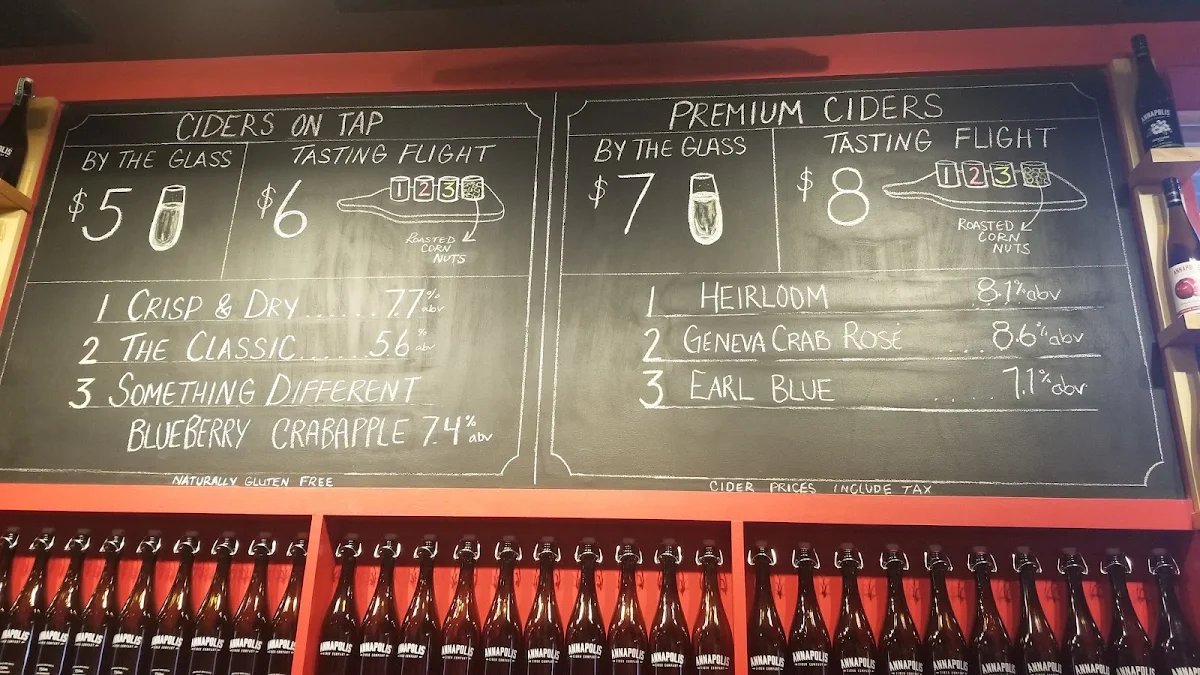 CIDERS ON TAP
BY THE GLASS
$5
TASTING FLIGHT
$6
1 2 3
ROASTED
CORN
NUTS
1 CRISP & DRY ...... 7.7% abv
2 THE CLASSIC ...... 5.6% abv
3 SOMETHING DIFFERENT
BLUEBERRY CRABAPPLE 7.4% abv
NATURALLY GLUTEN FREE
PREMIUM CIDERS
BY THE GLASS
$7
TASTING FLIGHT
$8
1 2 3
ROASTED
CORN
NUTS
1 HEIRLOOM 8.1% abv
2 GENEVA CRAB ROSÉ .... 8.6% abv
3 EARL BLUE .... 7.1% abv
CIDER PRICES INCLUDE TAX
ANNAPOLIS
ANNAPOLIS
ANNAPOLIS
ANNAPOLIS
ANNAPOLIS
ANNAPOLIS
ANNAPOLIS
ANNAPOLIS
ANNAPOLIS
ANNAPOLIS
ANNAPOLIS
ANNAPOLIS
ANNAPOLIS
CIDER COMPANY